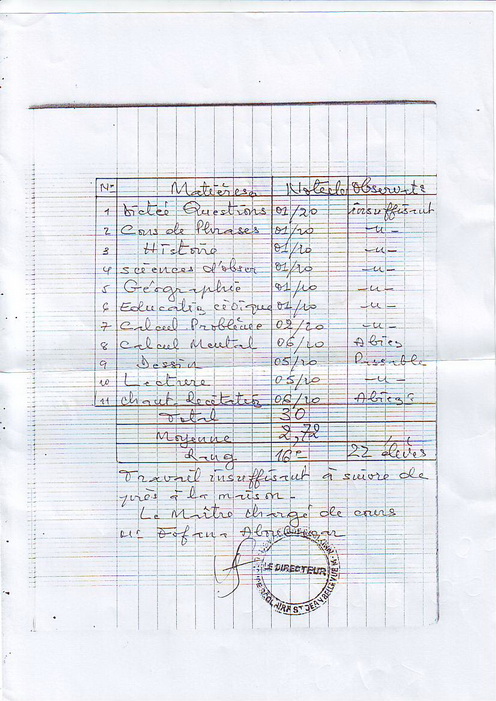 N° Matières Notes Observats
1 Dictée Questions 01/20 insuffisant
2 Cons de Phrases 01/10 -"-
3 Histoire 01/10 -"-
4 Sciences d'obser 01/10 -"-
5 Géographie 01/10 -"-
6 Education civique 01/10 -"-
7 Calcul Problème 02/20 -"-
8 Calcul Mental 06/10 ABien
9 Dessin 05/10 Passable
10 Lecture 05/10 -"-
11 Chant Recitation 06/10
Total 30
Moyenne 2,72
Rang 16e 22 élèves
Travail insuffisant à suivre de
près à la maison.
Le Maître chargé de cours
Mr Fofana
LE DIRECTEUR
SCOLAIRE ST JEAN BELLEVUE